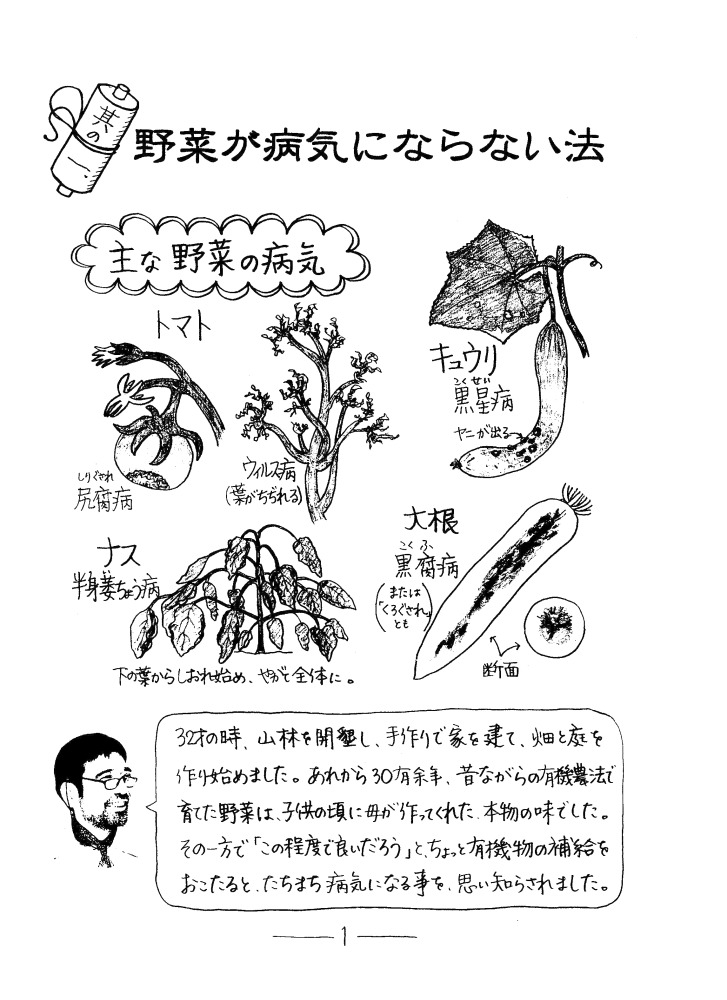 其の一
野菜が病気にならない法
主な野菜の病気
トマト
しりぐされ
尻腐病
ウィルス病
(葉がちぢれる)
キュウリ
こくせい
黒星病
ヤニが出る
ナス
半身萎ちょう病
下の葉からしおれ始め、やがて全体に。
大根
こくふ
黒腐病
(または
「くろぐされ」
とも)
断面
32才の時、山林を開墾し、手作りで家を建て、畑と庭を
作り始めました。あれから30有余年、昔ながらの有機農法で
育てた野菜は、子供の頃に母が作ってくれた、本物の味でした。
その一方で「この程度で良いだろう」と、ちょっと有機物の補給を
おこたると、たちまち病気になる事を、思い知らされました。
1